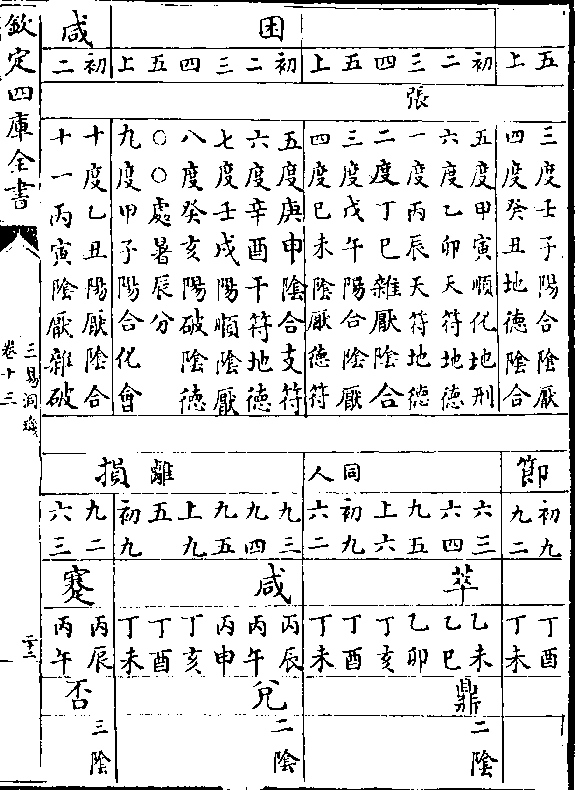 困
咸
五 上 初 二 三 四 五 上 初 二 三 四 五 上 初 二
張
三度壬子陽合陰厭
四度癸丑地德陰合
五度甲寅順化地刑
六度乙卯天符地德
一度丙辰天符地德
二度丁巳雜厭陰合
三度戊午陽合陰厭
四度己未陰厭德符
五度庚申陰合支符
六度辛酉干符地德
七度壬戌陽順陰厭
八度癸亥陽破陰德
○○處暑辰分
九度甲子陽合化會
十度乙丑陽厭陰合
十一丙寅陰厭雜破
節
同人
離
損
初九 九二 六三 六四 九五 上六 初九 六二 九三 九四 九五 上九 五 初九 九二 六三
萃
咸
蹇
丁酉 丁未 乙未 乙巳 乙卯 丁亥 丁酉 丁未 丙辰 丙午 丙申 丁亥 丁酉 丁未 丙辰 丙午
鼎
兌
否
二陰
二陰
三陰
欽定四庫全書
三易洞璣
卷十三